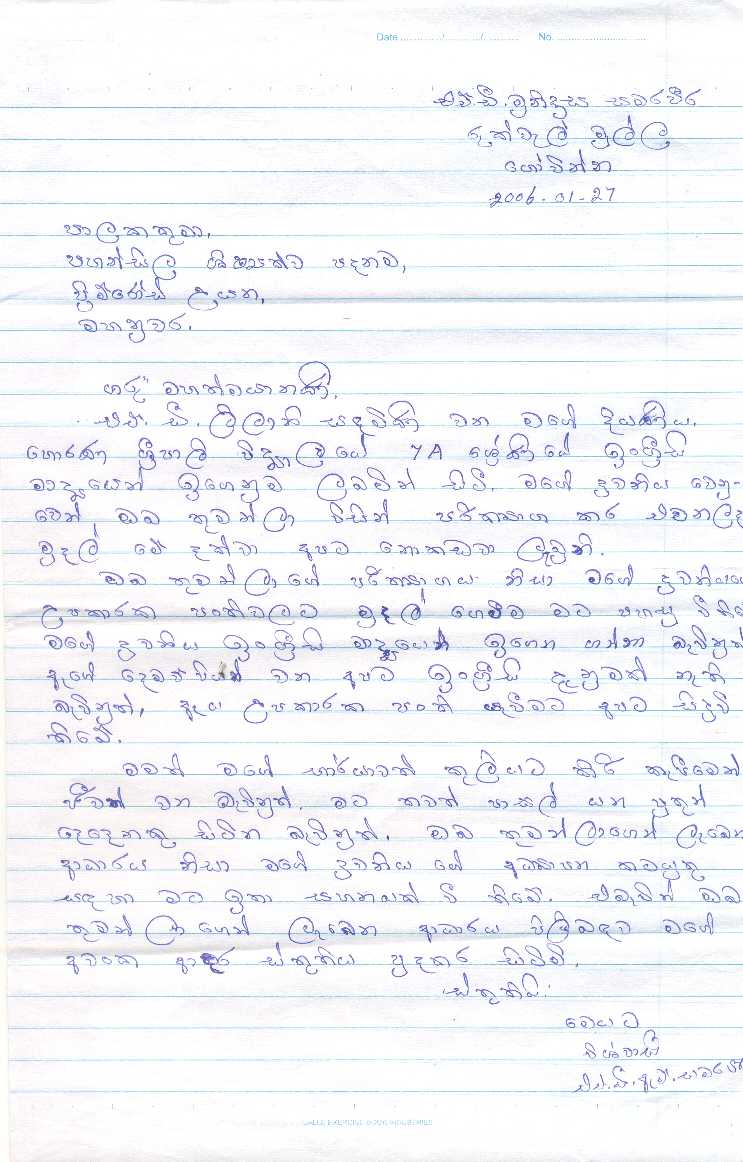 Date ............/............/............ No. ................................
එච්.ඩී. සමරවීර
රුක්වැල් මුල්ල
ගෝවින්න
2006-01-27
පාලකතුමා,
පහන්සිලු ශිෂ්‍යත්ව පදනම,
ප්‍රිම්රෝස් උයන,
මහනුවර.
ගරු මහත්මයාණනි,
එච්. ඩී. වන මගේ දියණිය,
හොරණ ශ්‍රීපාලි විද්‍යාලයේ 7A ශ්‍රේණියේ ඉංග්‍රීසි
මාධ්‍යයෙන් ඉගෙනුම ලබමින් සිටී. මගේ දුවනිය වෙනු-
වෙන් ඔබ තුමන්ලා විසින් පරිත්‍යාග කර එවනලද
මුදල් මේ දක්වා අපට නොකඩවා ලැබුනි.
ඔබ තුමන්ලාගේ පරිත්‍යාගය නිසා මගේ දුවනියගේ
උපකාරක පංතිවලට මුදල් ගෙවීම මට පහසු විනි
මගේ දුවනිය ඉංග්‍රීසි මාධ්‍යයෙන් ඉගෙන ගන්නා බැවිනුත්
ඇගේ දෙමව්පියන් වන අපට ඉංග්‍රීසි දැනුමක් නැති
බැවිනුත්, ඇය උපකාරක පංති යැවීමට අපට සිදුවී
තිබේ.
මමත් මගේ භාර්යාවත් කුලියට කිරි කැපීමෙන්
ජීවත් වන බැවිනුත්. මට තවත් පාසල් යන පුතුන්
දෙදෙනකු සිටින බැවිනුත්. ඔබ තුමන්ලාගෙන් ලැබෙන
ආධාරය නිසා මගේ දුවනිය ගේ අධ්‍යාපන කටයුතු
සඳහා මට ඉතා සහනයක් වී තිබේ. එබැවින් ඔබ
තුමන්ලාගෙන් ලැබෙන ආධාරය පිලිබඳව මගේ
අවංක ආදර ස්තුතිය පුදකර සිටිමි.
ස්තුතියි.
මෙයට
විශ්වාසී
එච්.ඩී.